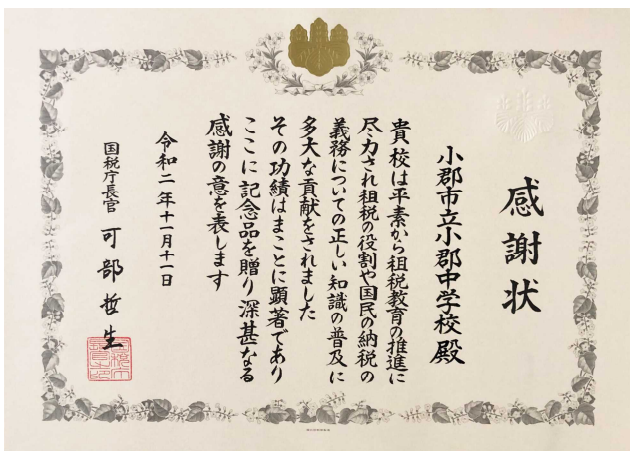 感謝状
小郡市立小郡中学校 殿
貴校は平素から租税教育の推進に
尽力され租税の役割や国民の納税の
義務についての正しい知識の普及に
多大な貢献をされました
その功績はまことに顕著であり
ここに記念品を贈り深甚なる
感謝の意を表します
令和二年十一月十一日
国税庁長官 可部哲生